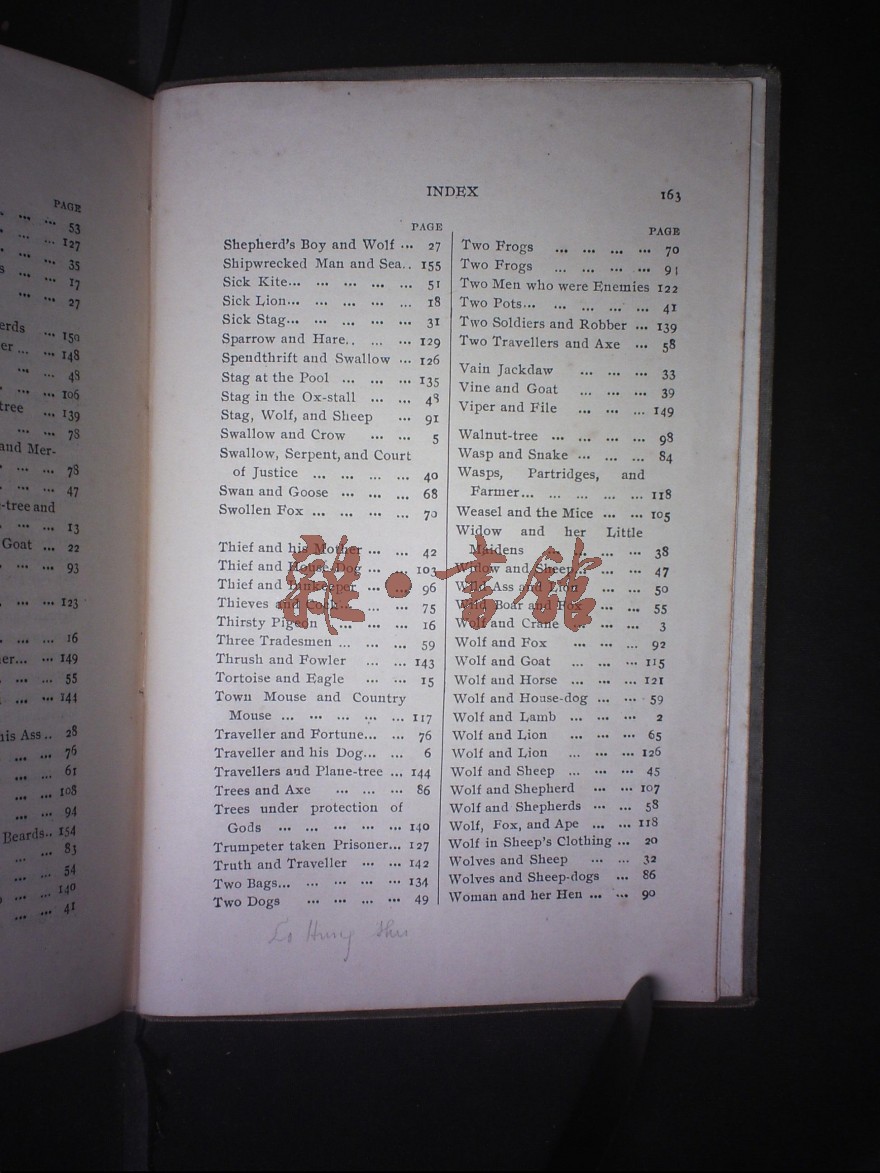 PAGE
... ... 53
... ... 127
... ... 35
... ... 17
... 27
erds ... 150
er ... ... 148
... ... 48
... ... 106
tree ... 139
... ... 78
and Mer-
... ... 78
... ... 47
-tree and
... ... 13
Goat ... 22
... ... 93
... ... 123
... ... 16
er... ... 149
... ... 55
... ... 144
his Ass .. 28
... ... 76
... ... 61
... ... 108
... ... 94
Beards.. 154
... ... 83
... ... 54
... ... 140
... ... 41
INDEX 163
PAGE
Shepherd's Boy and Wolf ... 27
Shipwrecked Man and Sea.. 155
Sick Kite... ... ... ... ... 51
Sick Lion... ... ... ... ... 18
Sick Stag... ... ... ... ... 31
Sparrow and Hare.. ... ... 129
Spendthrift and Swallow ... 126
Stag at the Pool ... ... ... 135
Stag in the Ox-stall ... ... 48
Stag, Wolf, and Sheep ... 91
Swallow and Crow ... ... 5
Swallow, Serpent, and Court
of Justice ... ... ... ... 40
Swan and Goose ... ... ... 68
Swollen Fox ... ... ... ... 70
Thief and his Mother ... ... 42
Thief and House-Dog ... ... 103
Thief and Innkeeper ... ... 96
Thieves and Cock... ... ... 75
Thirsty Pigeon ... ... ... 16
Three Tradesmen ... ... ... 59
Thrush and Fowler ... ... 143
Tortoise and Eagle ... ... 15
Town Mouse and Country
Mouse ... ... ... ... ... 117
Traveller and Fortune... ... 76
Traveller and his Dog... ... 6
Travellers and Plane-tree ... 144
Trees and Axe ... ... ... 86
Trees under protection of
Gods ... ... ... ... ... 140
Trumpeter taken Prisoner... 127
Truth and Traveller ... ... 142
Two Bags... ... ... ... ... 134
Two Dogs ... ... ... ... 49
PAGE
Two Frogs ... ... ... ... 70
Two Frogs ... ... ... ... 91
Two Men who were Enemies 122
Two Pots... ... ... ... ... 41
Two Soldiers and Robber ... 139
Two Travellers and Axe ... 58
Vain Jackdaw ... ... ... 33
Vine and Goat ... ... ... 39
Viper and File ... ... ... 149
Walnut-tree ... ... ... ... 98
Wasp and Snake ... ... ... 84
Wasps, Partridges, and
Farmer... ... ... ... ... 118
Weasel and the Mice ... ... 105
Widow and her Little
Maidens ... ... ... ... 38
Widow and Sheep... ... ... 47
Wild Ass and Lion ... ... 50
Wild Boar and Fox ... ... 55
Wolf and Crane ... ... ... 3
Wolf and Fox ... ... ... 92
Wolf and Goat ... ... ... 115
Wolf and Horse ... ... ... 121
Wolf and House-dog ... ... 59
Wolf and Lamb ... ... ... 2
Wolf and Lion ... ... ... 65
Wolf and Lion ... ... ... 126
Wolf and Sheep ... ... ... 45
Wolf and Shepherd ... ... 107
Wolf and Shepherds ... ... 58
Wolf, Fox, and Ape ... ... 118
Wolf in Sheep's Clothing ... 20
Wolves and Sheep ... ... 32
Wolves and Sheep-dogs ... 86
Woman and her Hen ... ... 90
Lo Hung Shu